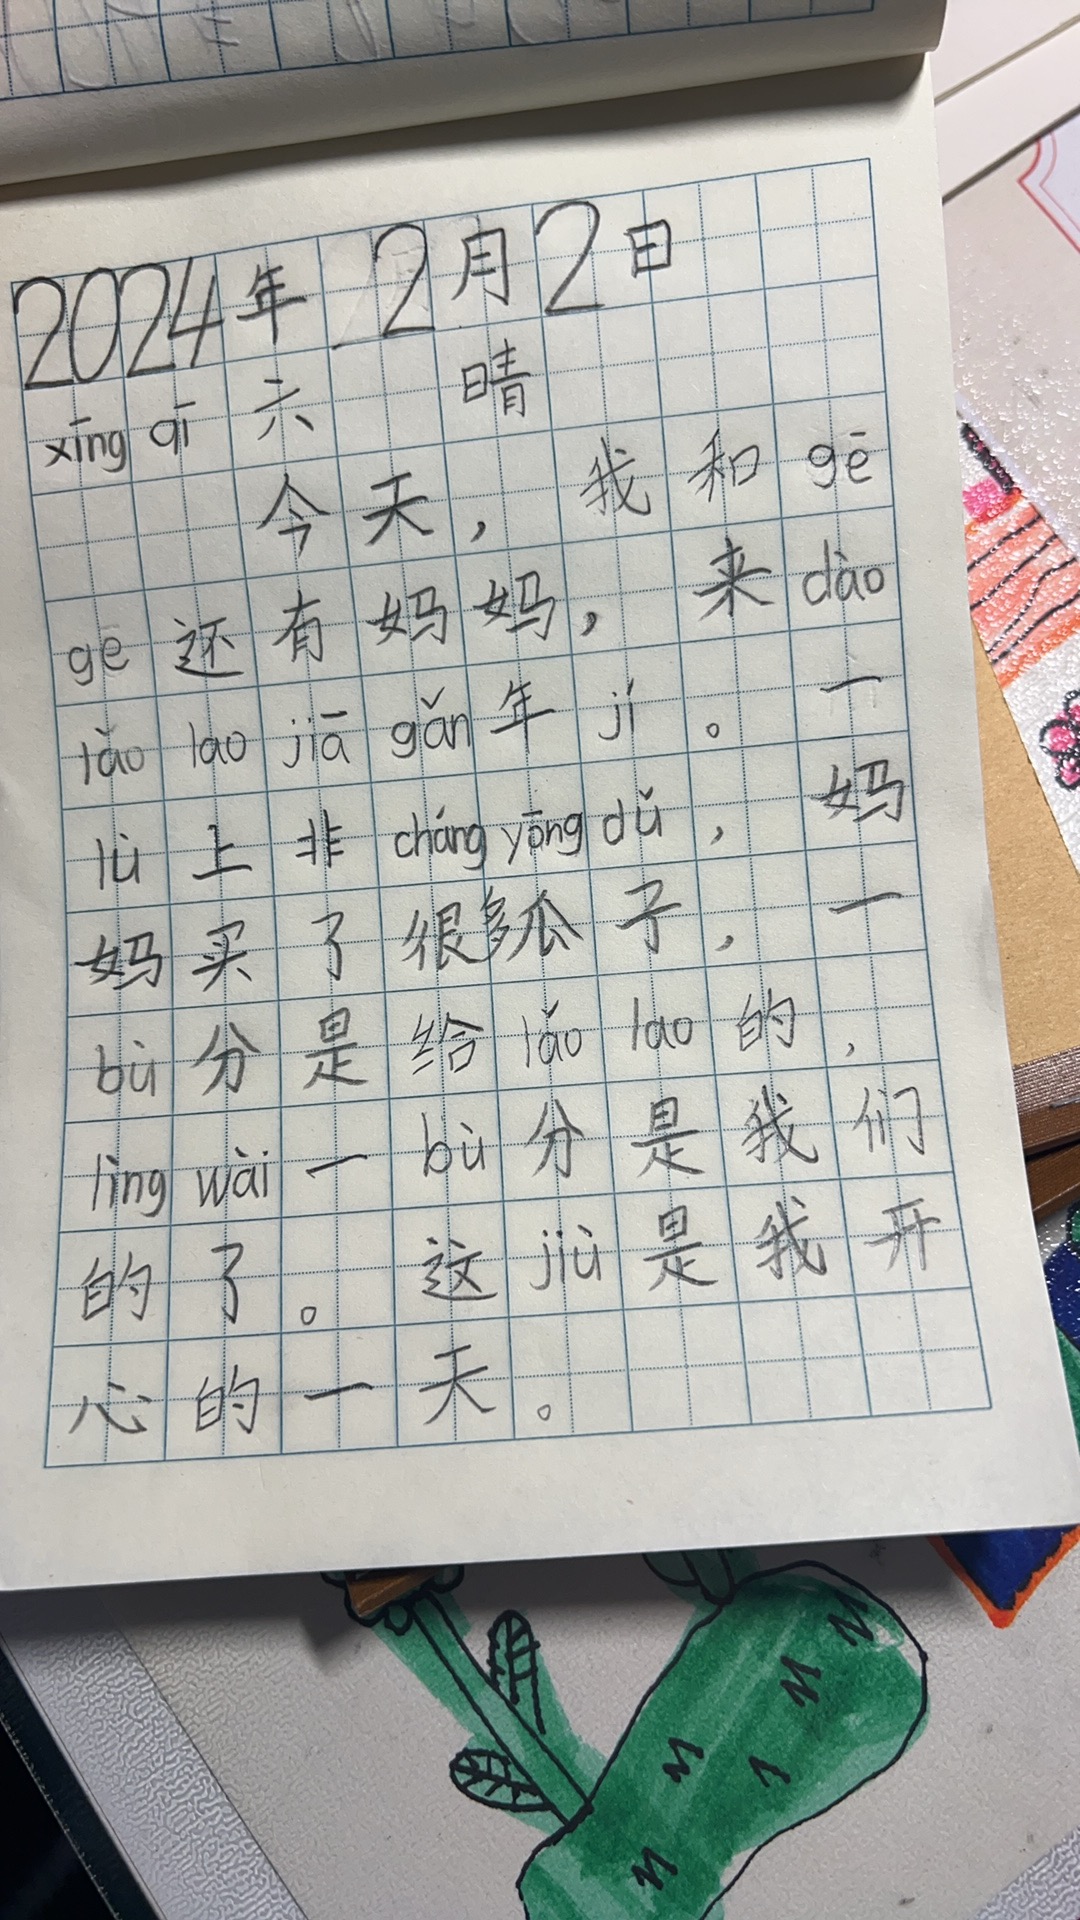 2024年 2月2日
xīng qī 六 晴
今天，我和gē
ge 还有妈妈，来dào
lǎo lao jiā gǎn年jí。一
lù上非cháng yōng dǔ，妈
妈买了很多瓜子，一
bù分是给lǎo lao的，
lìng wài一bù分是我们
的了。这jiù是我开
心的一天。